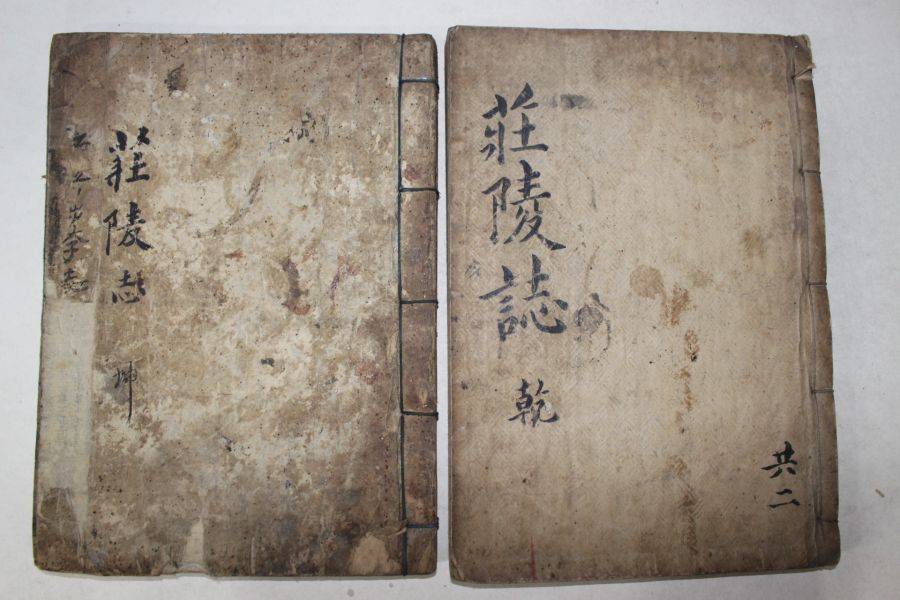 莊陵誌
乾
共二
莊陵志
坤